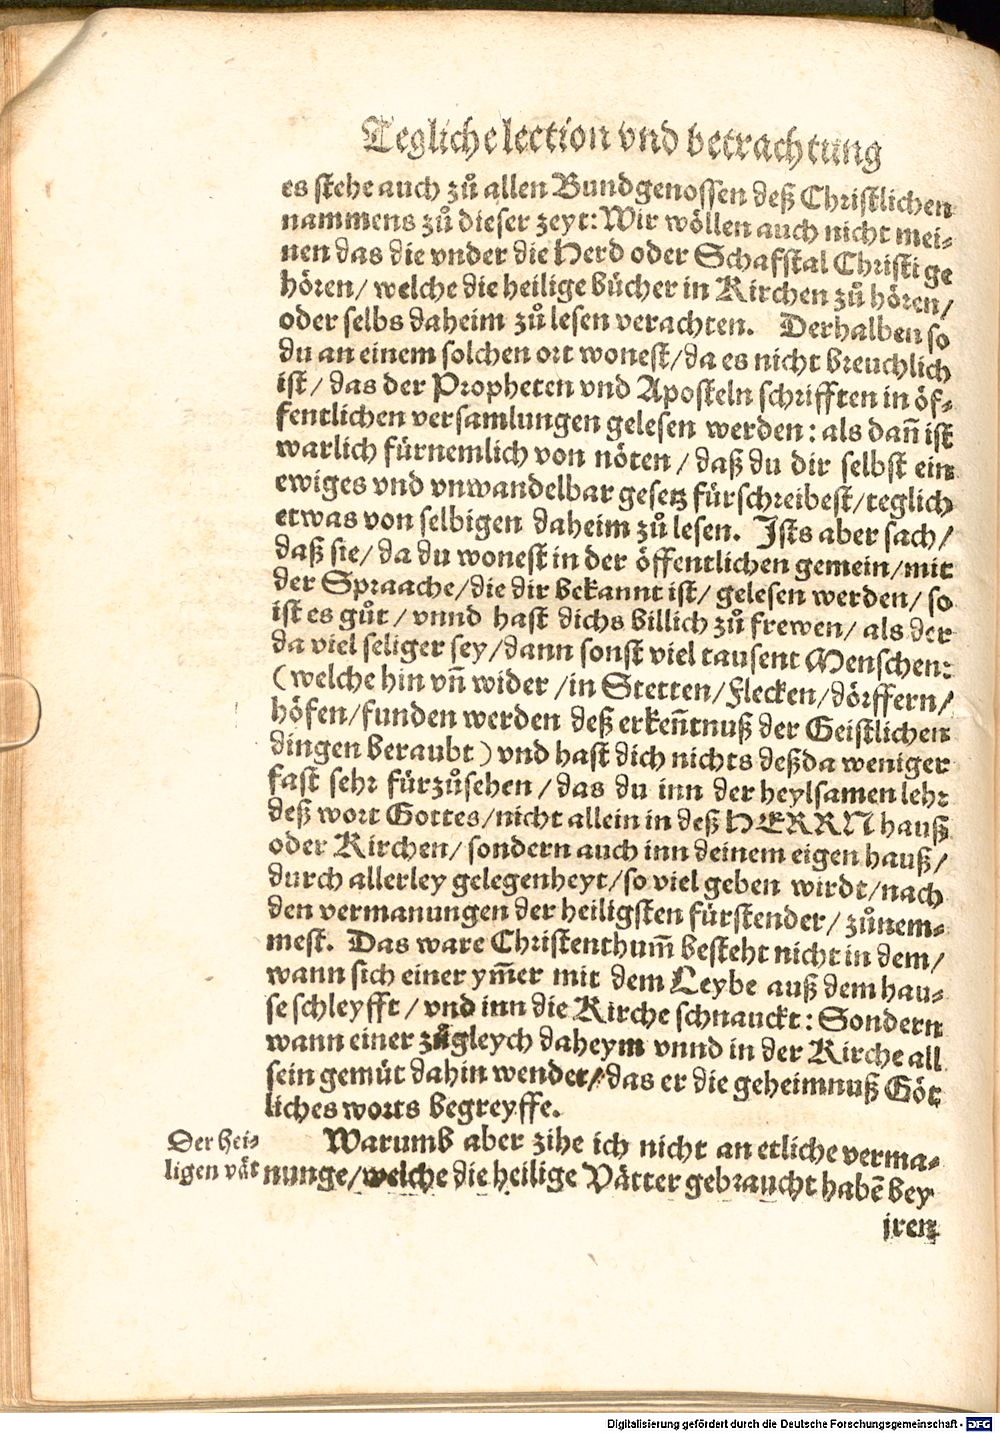 Tegliche lection vnd betrachtung
es stehe auch zů allen Bundgenossen deß Christlichen
nammens zů dieser zeyt: Wir wöllen auch nicht mei-
nen das die vnder die Herd oder Schafstal Christi ge
hören/ welche die heilige bücher in Kirchen zů hören/
oder selbs daheim zů lesen verachten. Derhalben so
du an einem solchen ort wonest/ da es nicht breuchlich
ist/ das der Propheten vnd Aposteln schrifften in öf-
fentlichen versamlungen gelesen werden: als dañ ist
warlich fürnemlich von nöten/ daß du dir selbst ein
ewiges vnd vnwandelbar gesetz fürschreibest/ teglich
etwas von selbigen daheim zů lesen. Ists aber sach/
daß sie/ da du wonest in der öffentlichen gemein/ mit
der Spraache/ die dir bekannt ist/ gelesen werden/ so
ist es gůt/ vnnd hast dichs billich zů frewen/ als der
da viel seliger sey/ dann sonst viel tausent Menschen:
(welche hin vñ wider/ in Stetten/ Flecken/ dörffern/
höfen/ funden werden deß erkeñtnuß der Geistlichen
dingen beraubt) vnd hast dich nichts deßda weniger
fast sehr fürzůsehen/ das du inn der heylsamen lehr
deß wort Gottes/ nicht allein in deß HERRN hauß
oder Kirchen/ sondern auch inn deinem eigen hauß/
durch allerley gelegenheyt/ so viel geben wirdt/ nach
den vermanungen der heiligsten fürstender/ zůnem-
mest. Das ware Christenthum̃ besteht nicht in dem/
wann sich einer ym̃er mit dem Leybe auß dem hau-
se schleyfft/ vnd inn die Kirche schnauckt: Sondern
wann einer zůgleych daheym vnnd in der Kirche all
sein gemüt dahin wendet/ das er die geheimnuß Göt
liches worts begreyffe.
Warumb aber zihe ich nicht an etliche verma-
Der hei-
ligen vät
nunge/ welche die heilige Vätter gebraucht habẽ bey
jren
Digitalisierung gefördert durch die Deutsche Forschungsgemeinschaft - DFG